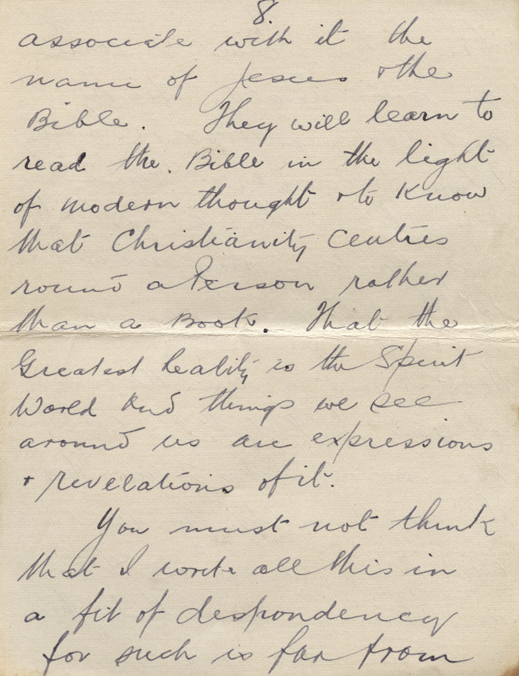 8.
associate with it the
name of Jesus & the
Bible. They will learn to
read the Bible in the light
of modern thought & to Know
that Christianity Centres
round a Person rather
than a Book. That the
Greatest Reality is the Spirit
World and things we see
around us are expressions
& revelations of it.
You must not think
that I write all this in
a fit of despondency
for such is far from